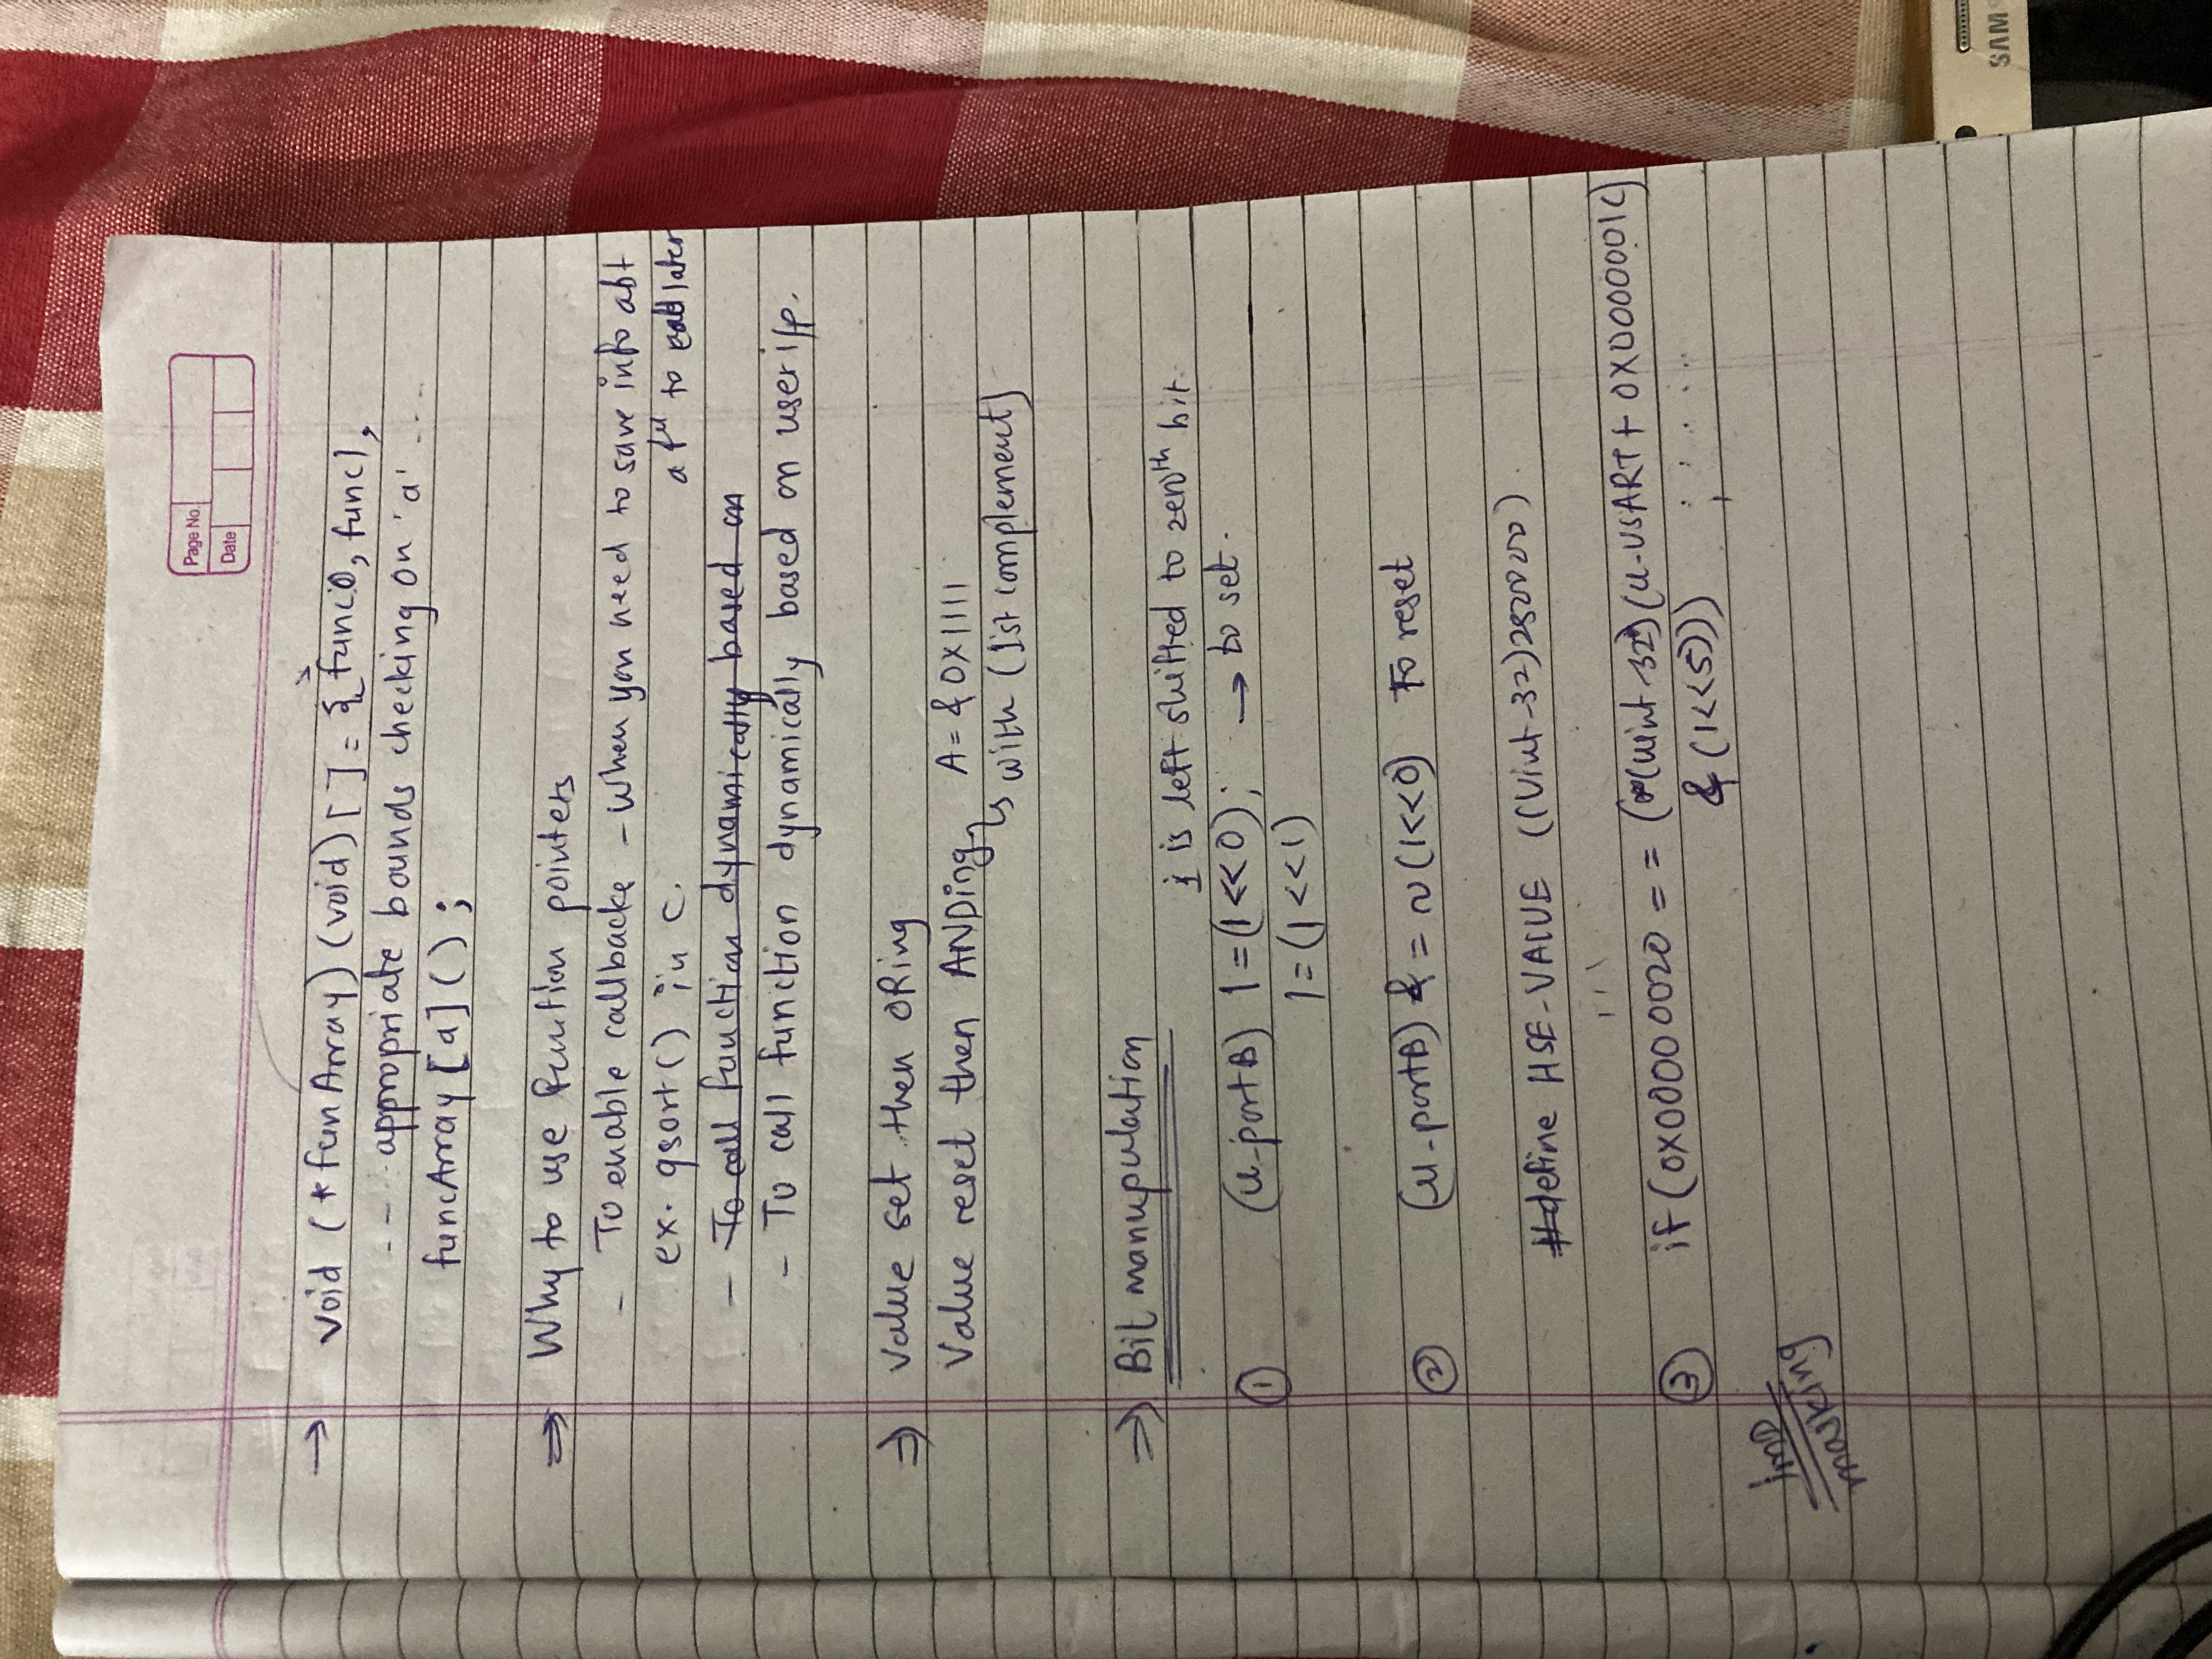 Page No.
Date
→ void (*funArray)(void)[ ] = { func0, func1,
-- .. appropriate bounds checking on 'a' ....
funcArray[a]();
⇒ Why to use function pointers
- To enable callbacks - When you need to save info abt
ex. qsort() in C. a fⁿ to call later
- To call function dynamically based on
- To call function dynamically based on user i/p.
⇒ Value set then ORing
Value reset then ANDing A = & 0X1111
↳ with (1st complement)
⇒ Bit manupulation
1 is left shifted to zeroth bit.
① (u-portB) |=(1<<0); → to set.
|=(1<<1)
② (u-portB) &= ~(1<<0) To reset
#define HSE-VALUE ((Uint-32)
③ if (0X00000020 == (*(uint-32*)(u-USART + 0X0000001C)
& (1<<5)))
imp
masking
SAMS